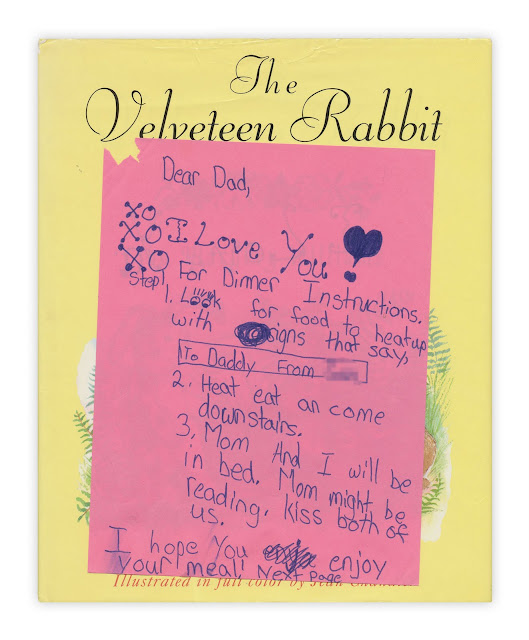 The
Velveteen Rabbit
Dear Dad,
XO
XO I Love You!
XO For Dinner Instructions.
Step! 1. Look for food to heat up
with signs that say,
To Daddy From
2. Heat eat an come
downstairs.
3. Mom And I will be
in bed. Mom might be
reading, kiss both of
us.
I hope you enjoy
your meal! Next Page
Illustrated in full color by